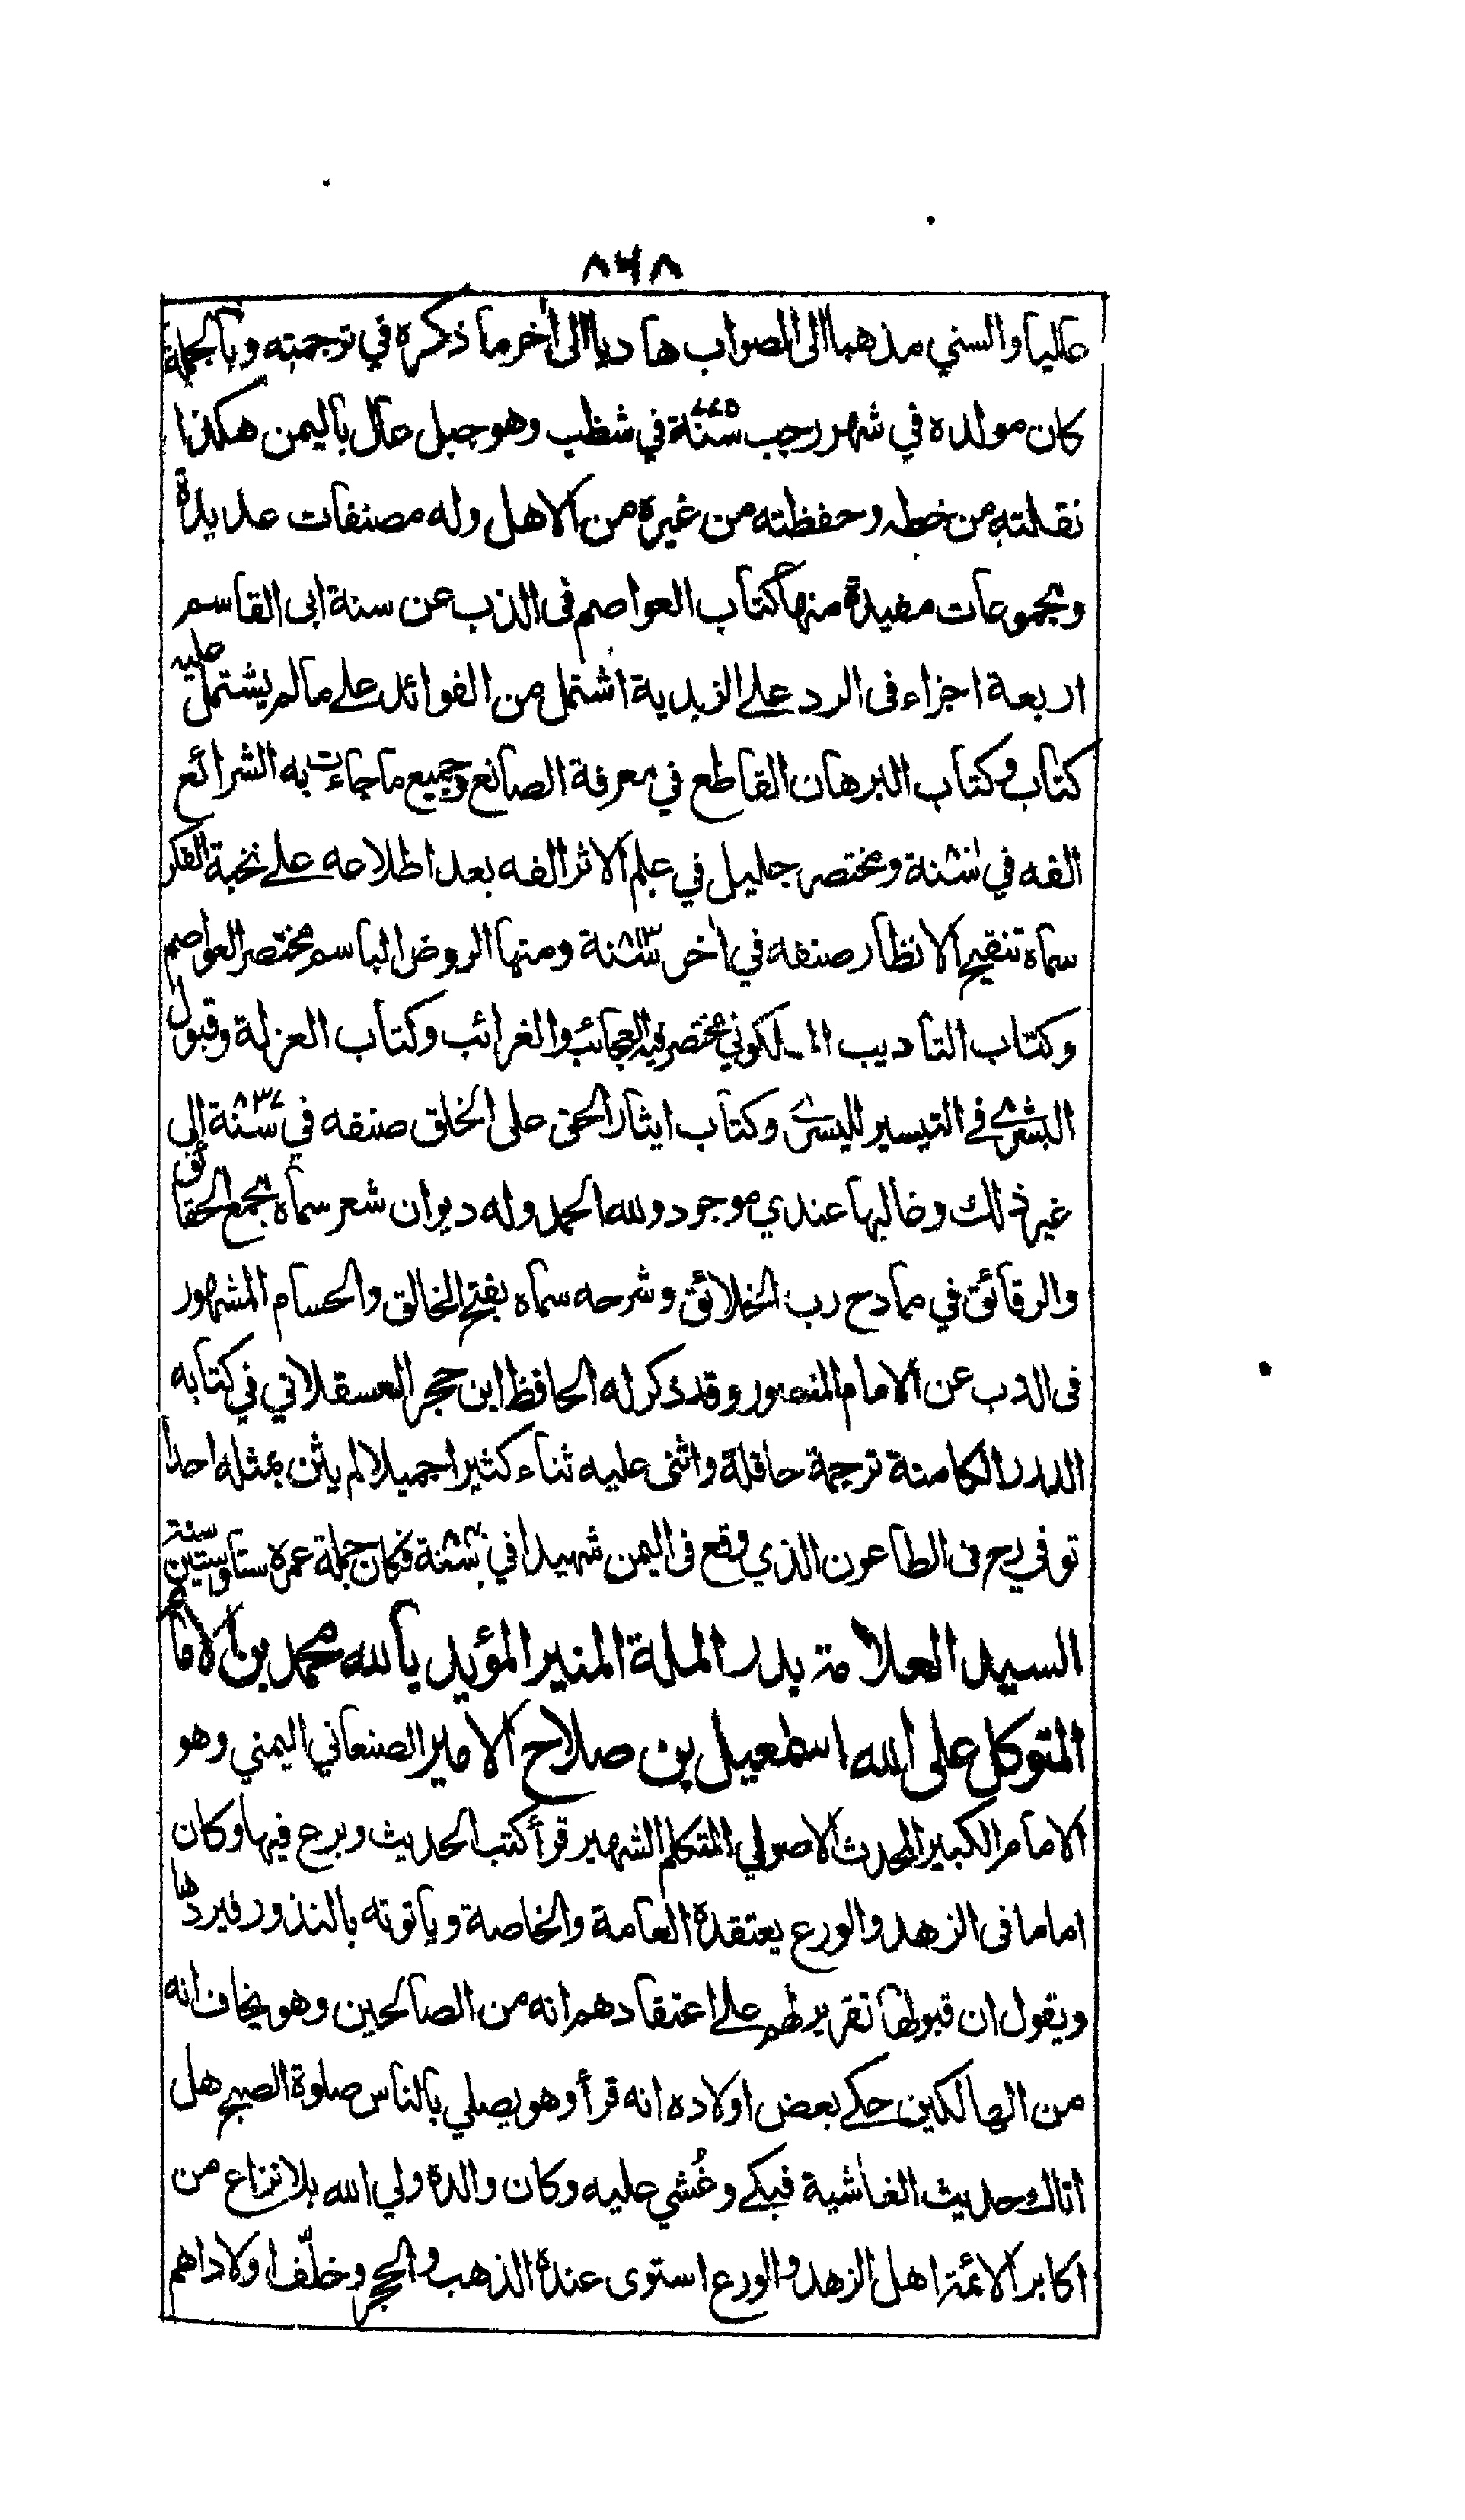 ٨٦٨
عليا والسني مذهبا الى الصواب هاديا الى اٰخر ما ذكره في ترجمته وبالجملة
كان مولده في شهر رجب سنة ٧٧٥ في شظب وهو جبل عال باليمن هكذا
نقلته من خطه وحفظته من غيره من الاهل وله مصنفات عديدة
ومجموعات مفيدة منها كتاب العواصم فى الذب عن سنة ابى القاسم
اربعة اجزاء فى الرد على الزيدية اشتمل من الفوائد على ما لم يشتمل عليه
كتاب وكتاب البرهان القاطع في معرفة الصانع وجميع ما جاءت به الشرائع
الفه في سنة ٨٠١ ومختصر جليل في علم الاثر الفه بعد اطلاعه على نخبة الفكر
سماه تنقيح الانظار صنفه في اٰخر سنة ٨١٣ ومنها الروض الباسم مختصر العواصم
وكتاب التاديب الملكوني مختصر فيه العجائب والغرائب وكتاب العزلة وقبول
البشرى فى التيسير لليسرى وكتاب ايثار الحق على الخلق صنفه في سنة ٨٣٧ إلى
غير ذلك وغالبها عندي موجود ولله الحمد وله ديوان شعر سماه مجمع الحقائق
والرقائق في ممادح رب الخلائق وشرحه سماه بفتح الخالق والحسام المشهور
فى الذب عن الامام المنصور وقد ذكر له الحافظ ابن حجر العسقلاني في كتابه
الدرر الكامنة ترجمة حافلة واثنى عليه ثناء كثيرا جميلا لم يثن بمثله احدا
توفي رح فى الطاعون الذي وقع فى اليمن شهيدا في سنة فكان جملة عمره ستا وستين سنة
السيد العلامة بدر الملة المنير المؤيد بالله محمد بن الامام
المتوكل على الله اسمعيل بن صلاح الامير الصنعاني اليمني وهو
الامام الكبير المحدث الاصولي المتكلم الشهير قرأ كتب الحديث وبرع فيها وكان
اماما فى الزهد والورع يعتقده العامة والخاصة وياتونه بالنذور فيردها
ويقول ان قبولها تقرير لهم على اعتقادهم انه من الصالحين وهو يخاف انه
من الهالكين حكى بعض اولاده انه قرأ وهو يصلي بالناس صلوة الصبح هل
اتاك حديث الغاشية فبكى وغُشي عليه وكان والده ولي الله بلا نزاع من
اكابر الائمة اهل الزهد والورع استوى عنده الذهب والحجر وخلّف اولادا هم